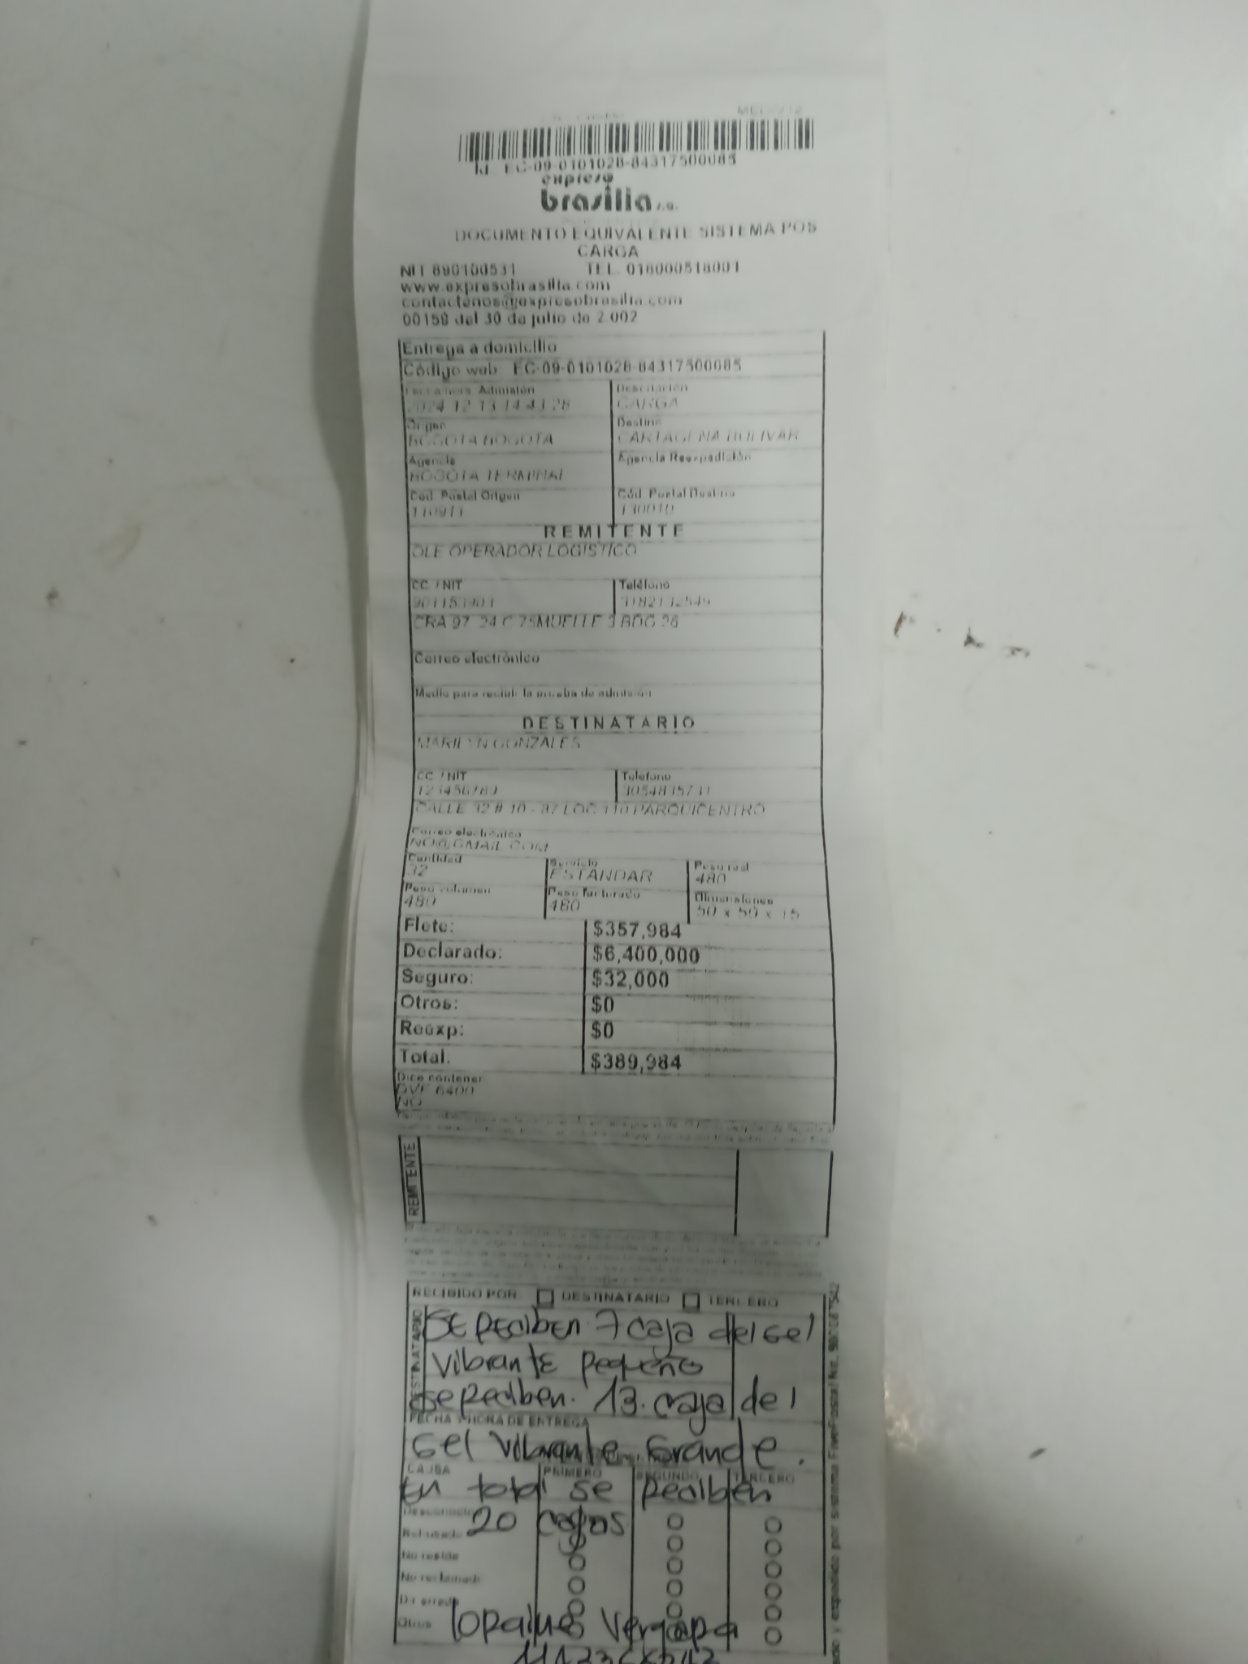 Id. EC-09-0101028-84317500085
expreso
brasilia s.a.
DOCUMENTO EQUIVALENTE SISTEMA POS
CARGA
NIT 890100531 TEL. 018000518001
www.expresobrasilia.com
contactenos@expresobrasilia.com
00158 del 30 de julio de 2.002
Entrega a domicilio
Código web: EC-09-0101028-84317500085
Admisión
2024-12-13 14:43:28 CARGA
Origen Destino
BOGOTA BOGOTA CARTAGENA BOLIVAR
Agencia Agencia Reexpedición
BOGOTA TERMINAL
Cód. Postal Origen Cód. Postal Destino
110911 130010
REMITENTE
OLE OPERADOR LOGISTICO
CC / NIT Teléfono
CRA 97 24 C 75MUELLE 3 BDG 26
Correo electrónico
Medio para recibir la prueba de admisión
DESTINATARIO
MARILYN GONZALES
CC / NIT Teléfono
123456789
CALLE 32 # 10 - 87 LOC 110 PARQUICENTRO
Correo electrónico
NO@GMAIL.COM
Cantidad Servicio Peso real
32 ESTANDAR 480
Peso volumen Peso facturado Dimensiones
480 480 50 x 50 x 15
Flete: $357,984
Declarado: $6,400,000
Seguro: $32,000
Otros: $0
Reexp: $0
Total: $389,984
Dice contener
6400
NO
REMITENTE
RECIBIDO POR DESTINATARIO TERCERO
DESTINATARIO
Se reciben 7 caja del Gel
Vibrante pequeño
se reciben. 13. caja del
FECHA Y HORA DE ENTREGA
Gel Vibrante Grande.
CAUSA PRIMERO SEGUNDO TERCERO
En total se reciben
Desconocido
20 cajas
Rehusado
No reside
No reclamado
Dir. errada
Otros